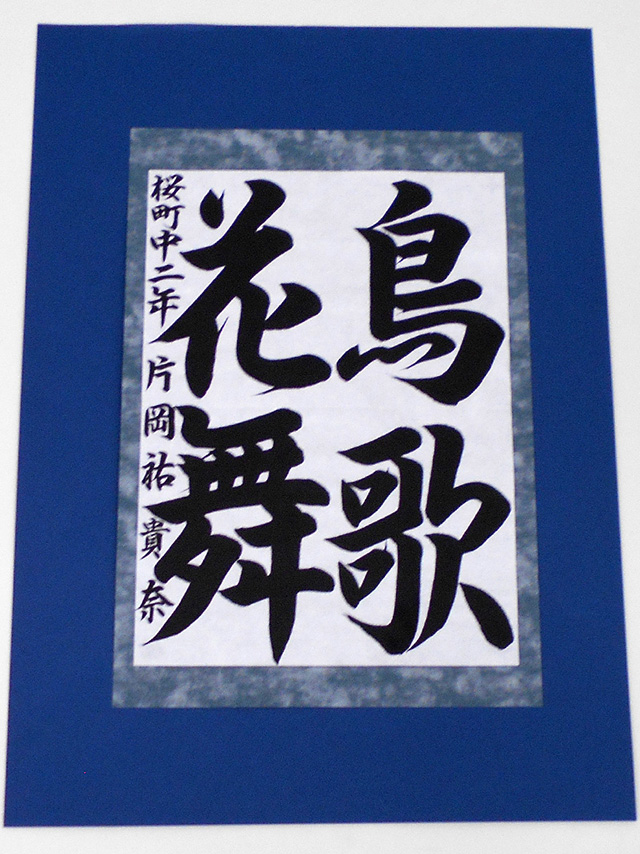 鳥歌
花舞
桜町中二年 片岡祐貴奈